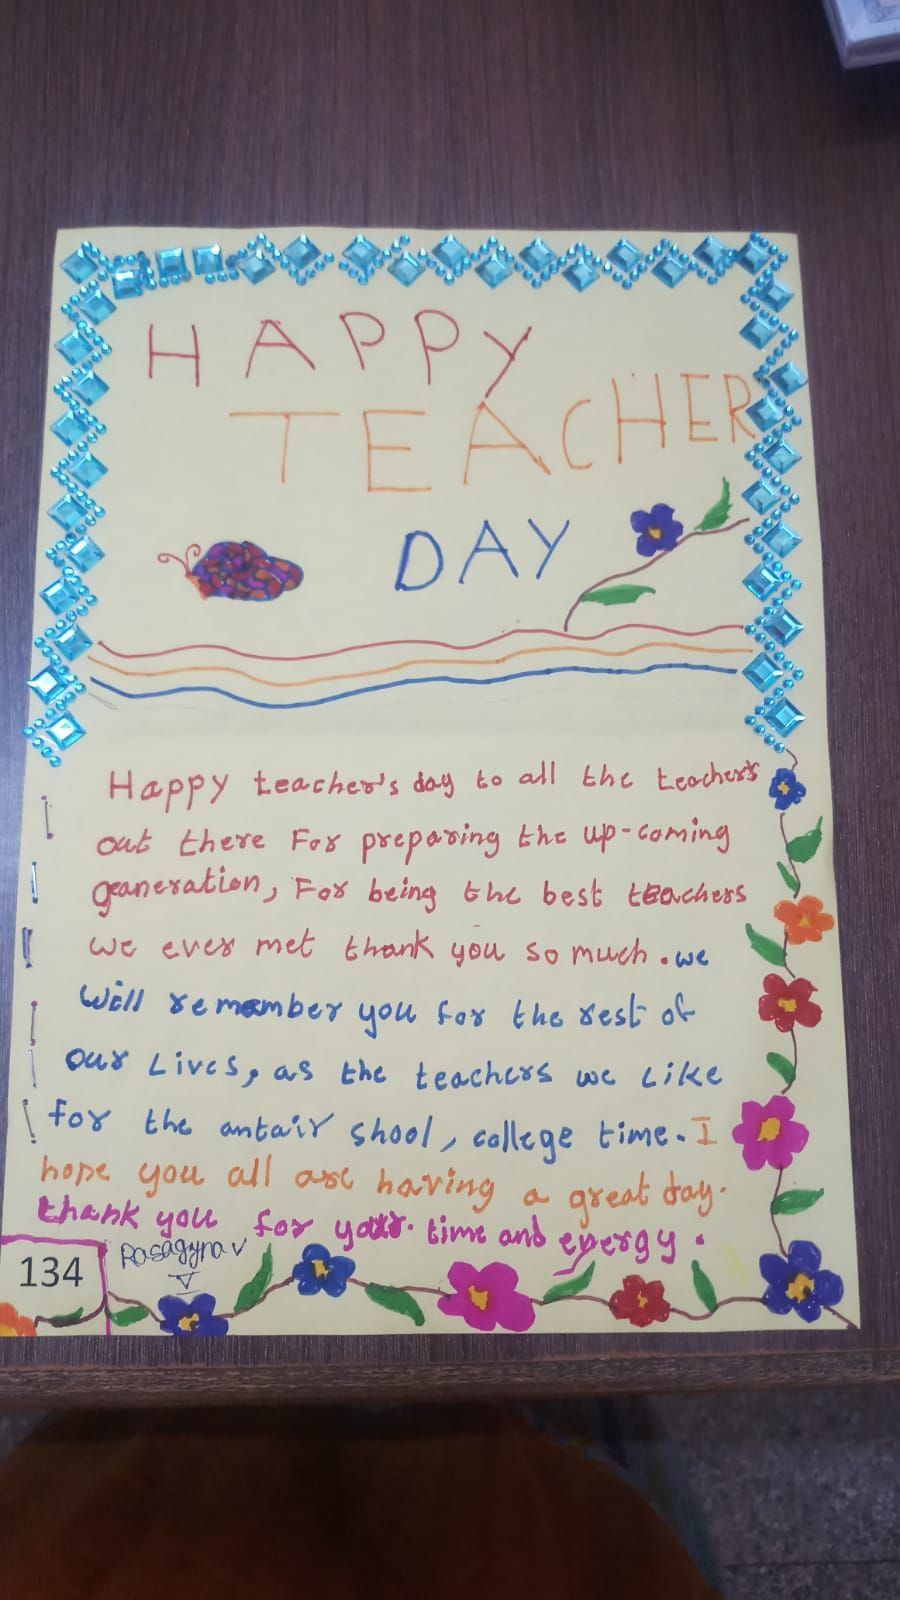 HAPPY
TEACHER
DAY
Happy teacher's day to all the teacher's
out there For preparing the up-coming
geaneration, For being the best teachers
we ever met thank you so much. we
will remember you for the rest of
our Lives, as the teachers we Like
for the antair shool, college time. I
hope you all are having a great day.
thank you for your time and energy.
Rasagyna v
V
134